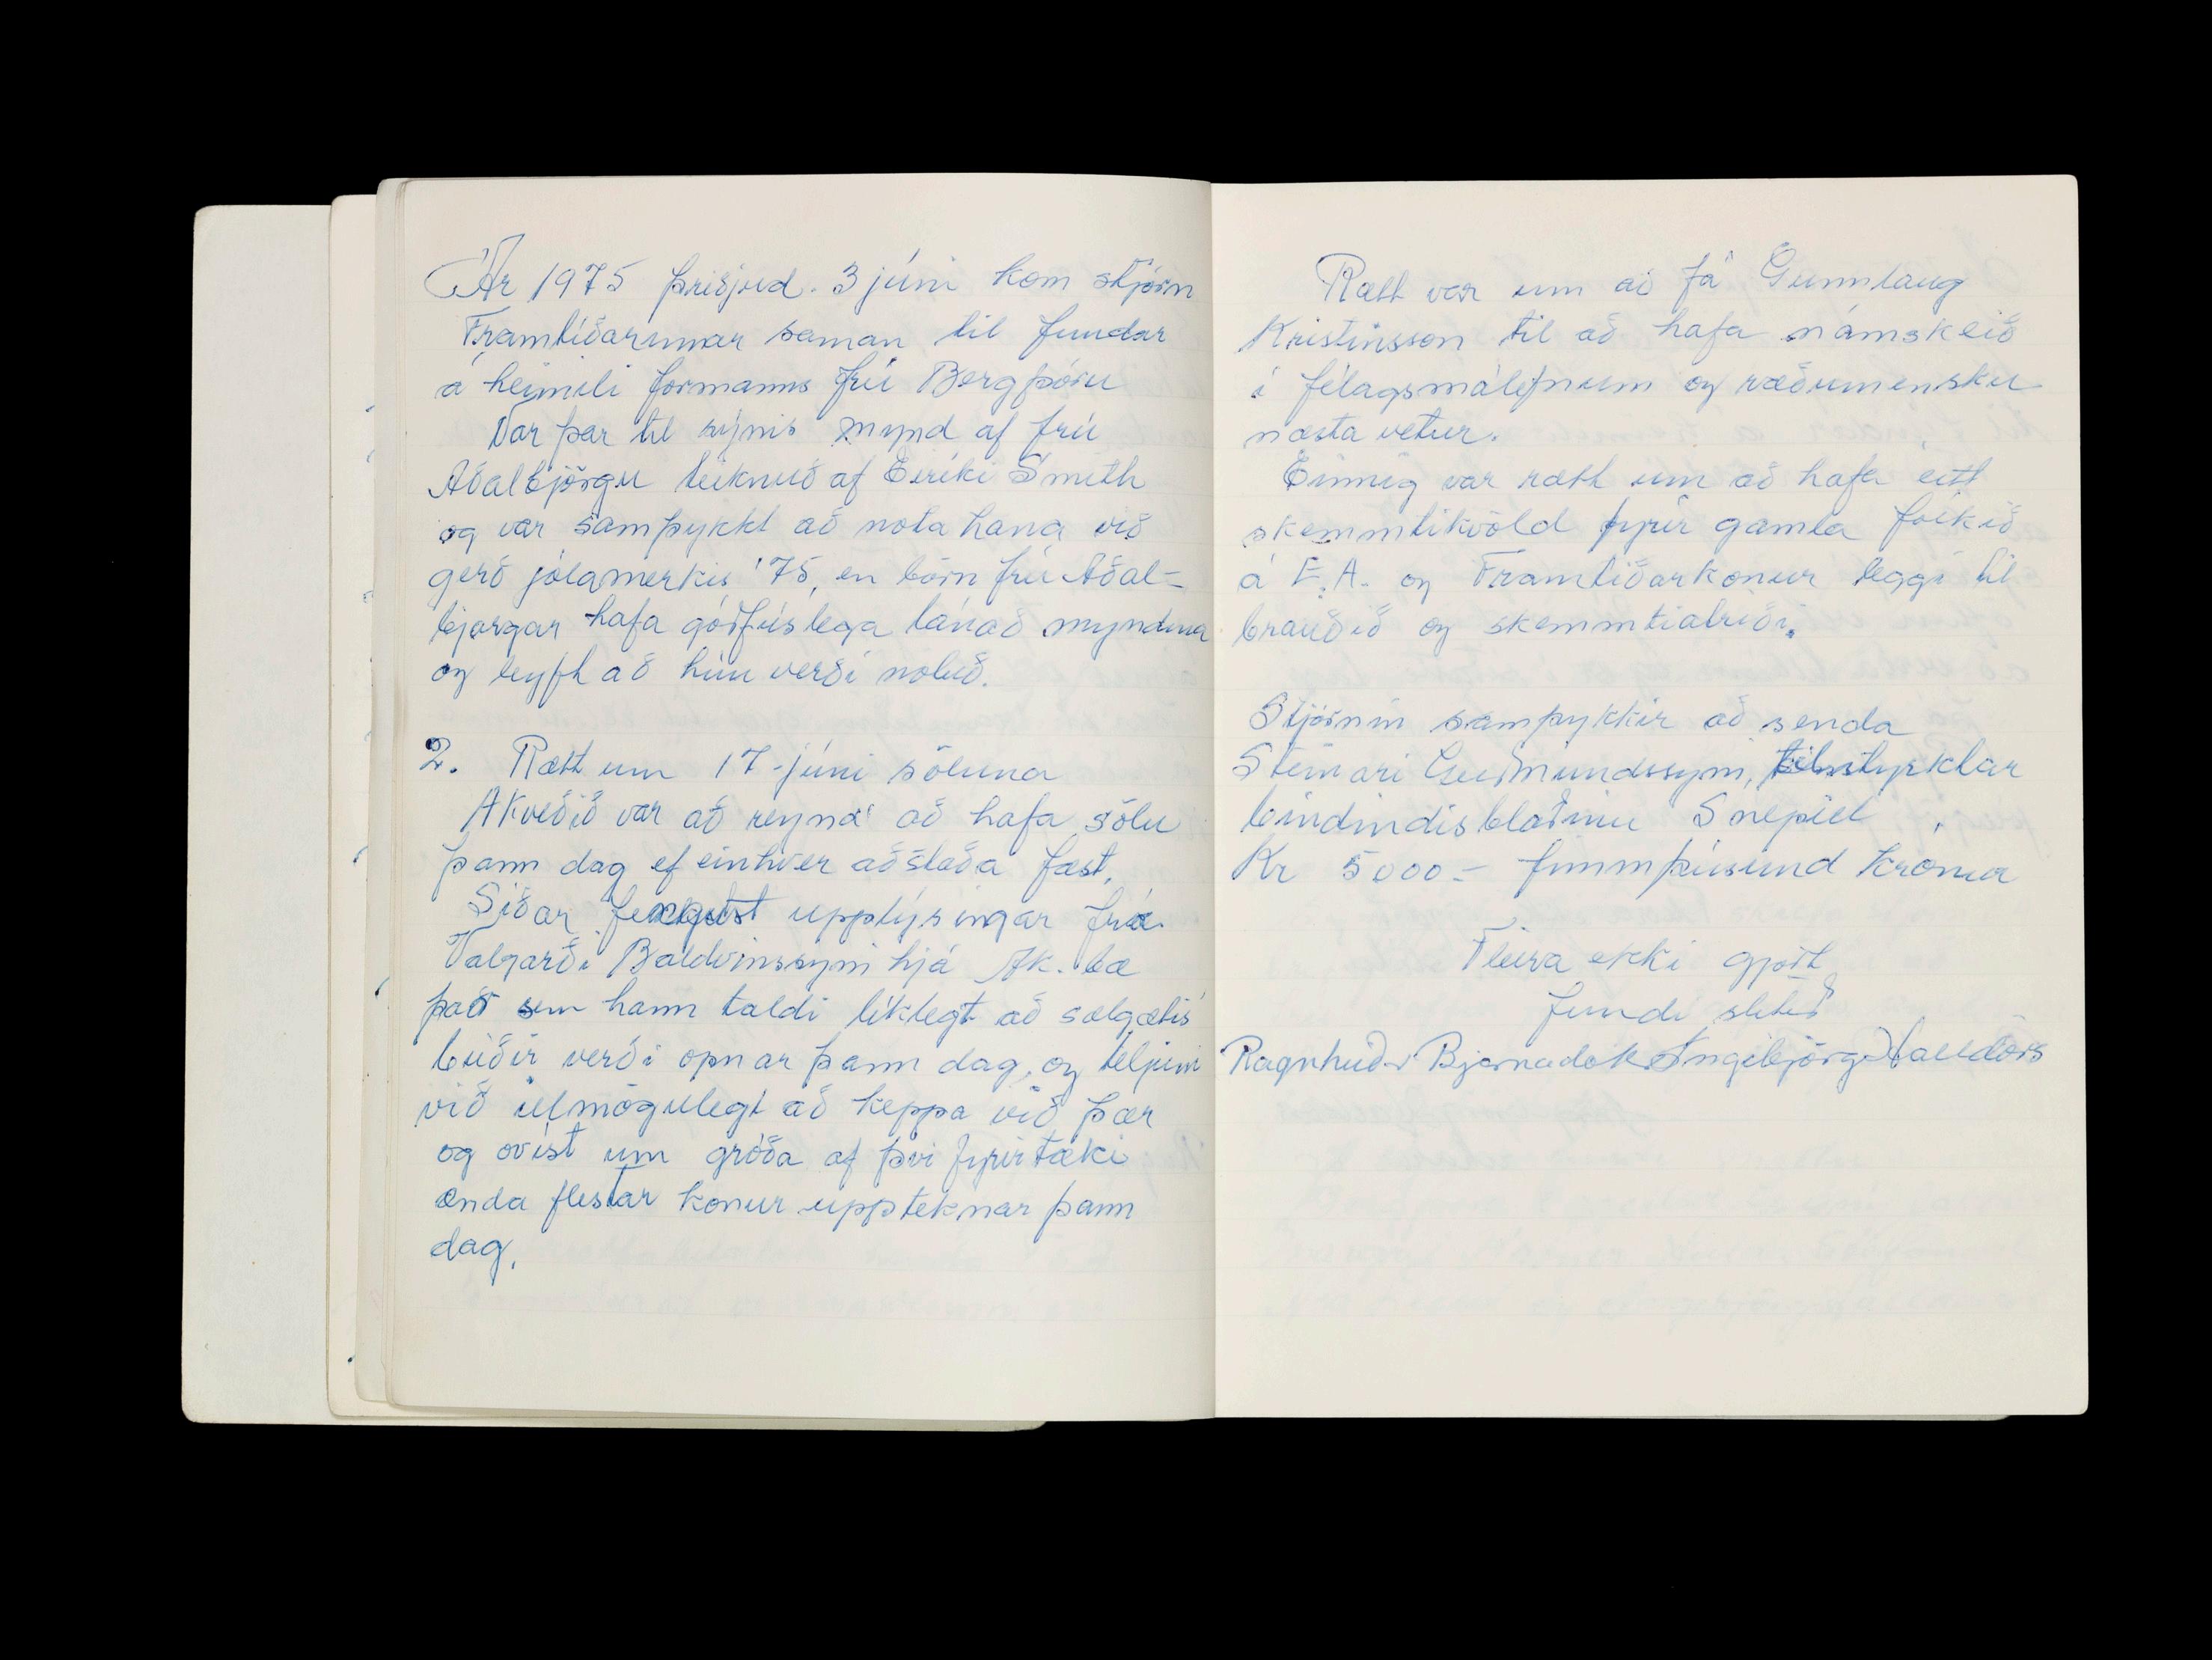 Ár 1975 þriðjud. 3 júni kom stjórn
Framtíðarinnar saman til fundar
á heimili formanns frú Bergþóru
Var þar til sýnis mynd af frú
Aðalbjörgu teiknuð af Eiríki Smith
og var samþykkt að nota hana við
gerð jólamerkis '75, en börn frú Aðal-
bjargar hafa góðfúslega lánað myndina
og leyft að hún verði notuð.
2. Rætt um 17-júni söluna
Akveðið var að reyna að hafa sölu
þann dag ef einhver aðstaða fæst.
Síðar upplýsingar frá
Valgarði Baldvinssyni hjá Ak. bæ
það sem hann taldi líklegt að sælgætis
búðir verði opnar þann dag, og teljum
við útmögulegt að keppa við þær
og ovíst um gróða af því fyrirtæki
enda flestar konur uppteknar þann
dag.
Rætt var um að fá Gunnlaug
Kristinsson til að hafa námskeið
í félagsmálefnum og ræðumensku
næsta vetur.
Einnig var rætt um að hafa eitt
skemmtikvöld fyrir gamla fólkið
á E.A. og Framtíðarkonur leggi til
brauðið og skemmtiatriði.
Stjórnin samþykkir að senda
Steinari Guðmundssyni, til styrktar
bindindisblaðinu Snepill
Kr 5000.- fimmþúsund krónur
Fleira ekki gjört
fundi slitið
Ragnheiður Bjarnadótt Ingibjörg Halldórs